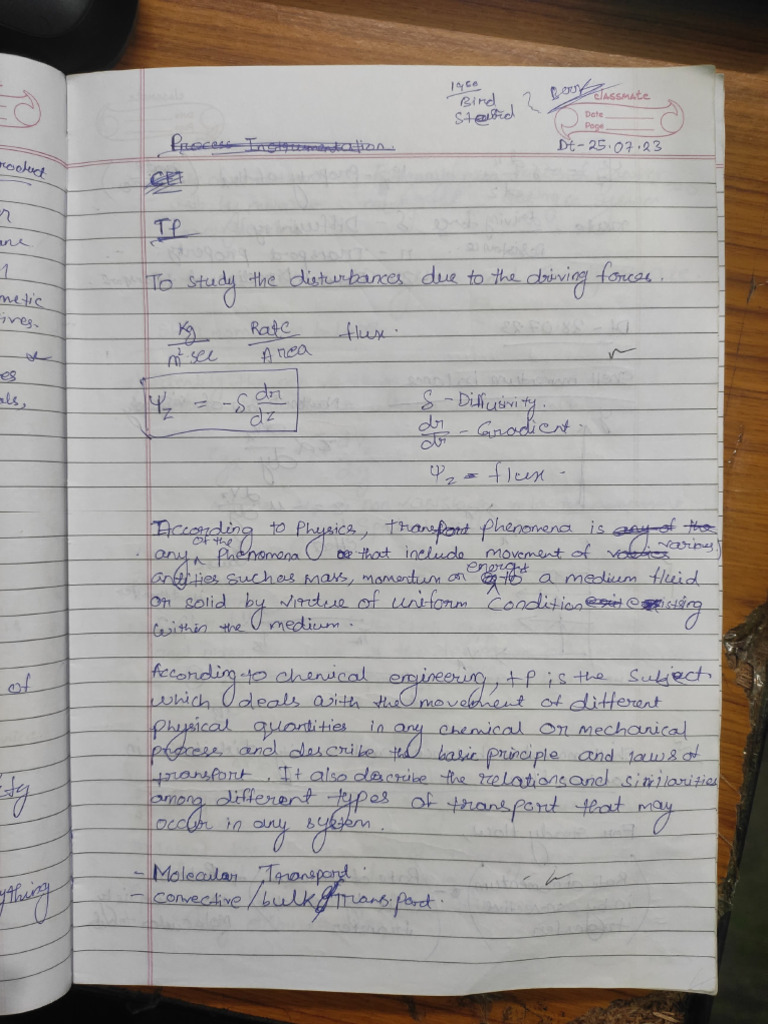 1960
Bird
Book
classmate
Date
Page
Dt-25.07.23
Process Instrumentation
TP
To study the disturbances due to the driving forces.
Kg/m².sec Rate/Area flux.
Ψz = -δ dπ/dz
δ - Diffusivity.
- Gradient.
Ψz = flux.
According to Physics, transport phenomena is any of the
any of the phenomena that include movement of various
entities such as mass, momentum or energy a medium fluid
or solid by virtue of uniform condition existing
within the medium.
According to chemical engineering, tp is the subject
which deals with the movement of different
physical quantities in any chemical or mechanical
process and describe the basic principle and laws of
transport. It also describe the relations and similarities
among different types of transport that may
occur in any system.
- Molecular Transport.
- convective/bulk Transport.
roduct
ane
metic
ives.
es
als,
of
ity
ything